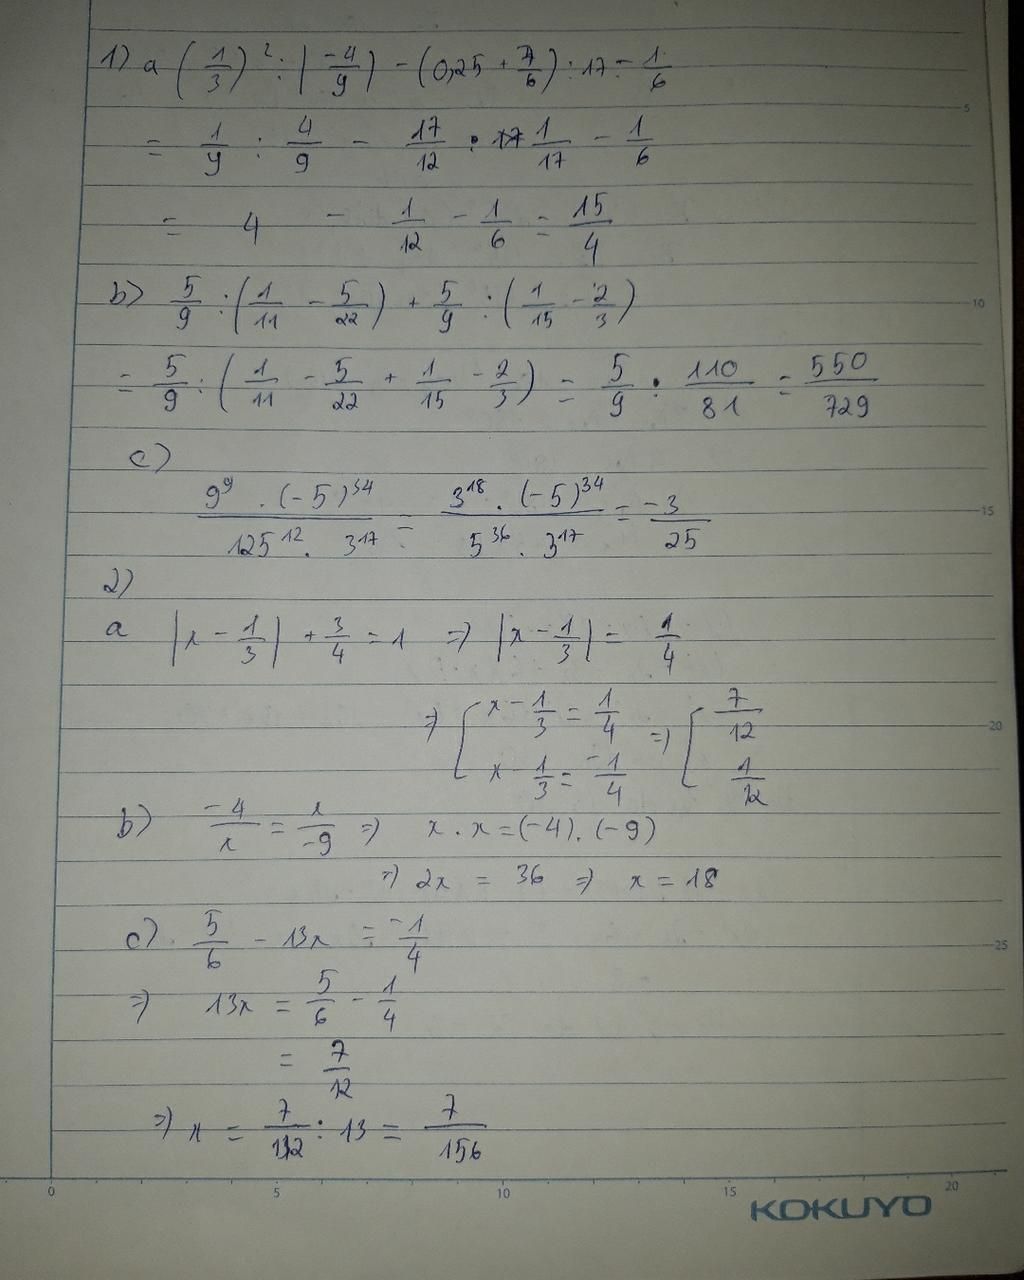 1) a (1/3)² : |-4/9) - (0,25 + 7/6) : 17 - 1/6
= 1/9 : 4/9 - 17/12 . 1/17 - 1/6
= 4 - 1/12 - 1/6 = 15/4
b) 5/9 : (1/11 - 5/22) + 5/9 : (1/15 - 2/3)
= 5/9 : (1/11 - 5/22 + 1/15 - 2/3) = 5/9 . 110/81 = 550/729
c)
9⁹ . (-5)³⁴ / 125¹² . 3¹⁷ = 3¹⁸ . (-5)³⁴ / 5³⁶ . 3¹⁷ = -3/25
2)
a |x - 1/3| + 3/4 = 1 => |x - 1/3| = 1/4
=> [ x - 1/3 = 1/4 => [ 7/12
x - 1/3 = -1/4 1/12
b) -4/x = x/-9 => x . x = (-4). (-9)
=> 2x = 36 => x = 18
c) 5/6 - 13x = -1/4
=> 13x = 5/6 - 1/4
= 7/12
=> x = 7/12 : 13 = 7/156
5
10
15
20
25
0 5 10 15 20
KOKUYO